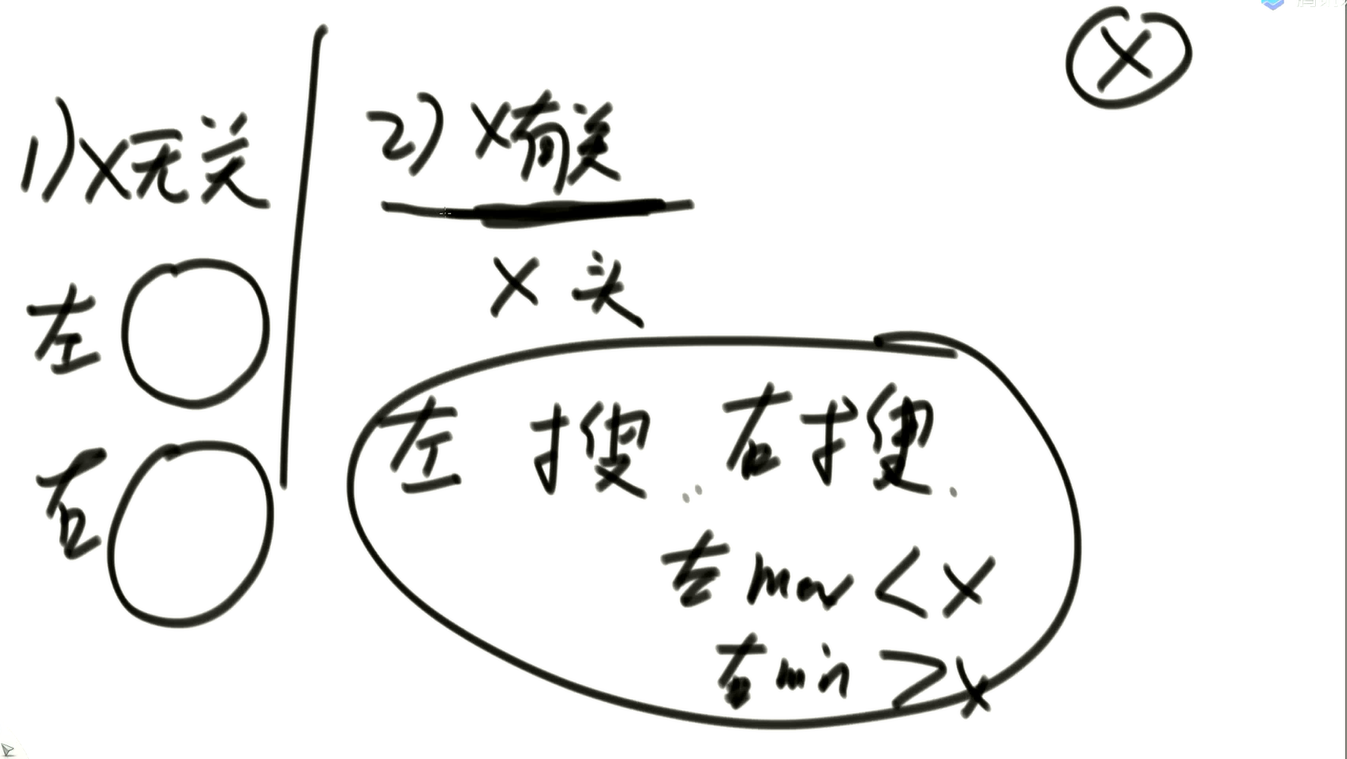 X
1) X无关
左
右
2) X有关
X 头
左 搜 右搜
左max < X
右min > X